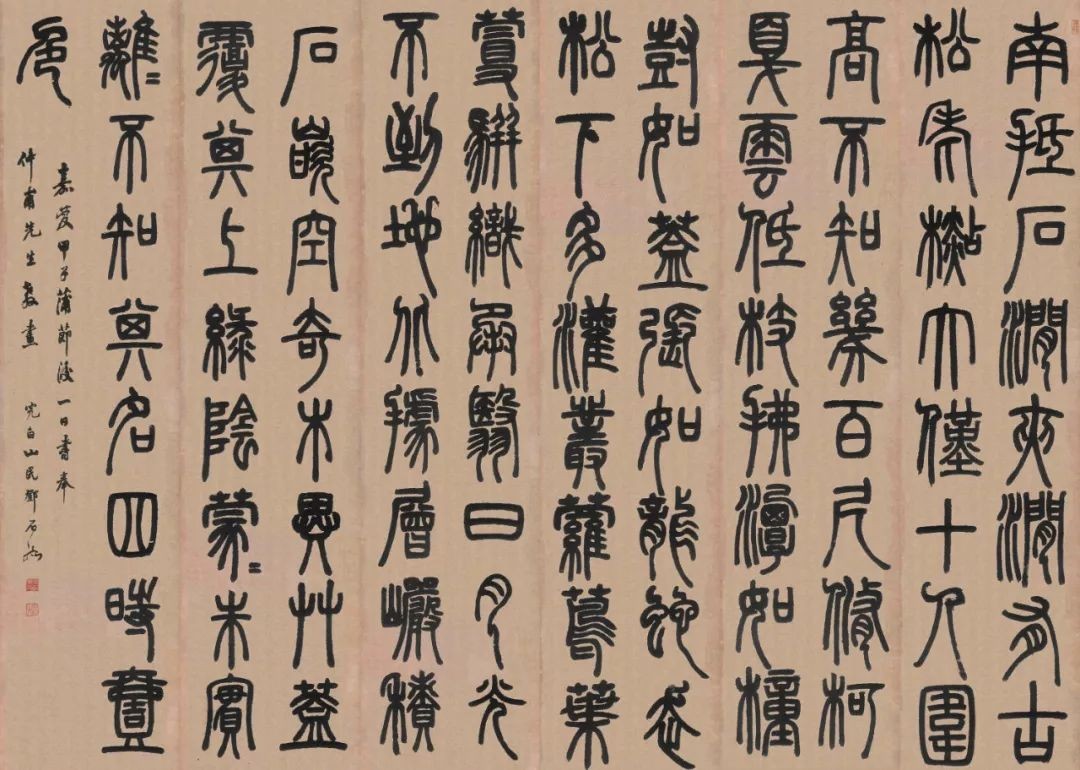 南抵石澗夾澗有古
松老檆大僅十人圍
高不知幾百尺脩柯
戛雲低枝拂潭如橦
尌如蓋張如龍蛇走
松下多灌叢蘿蔦葉
蔓駢織承翳日月光
不到地北據層巖積
石嵌空奇木異艸蓋
覆其上綠陰蒙〻朱實
離〻不知其名四時壹
色
嘉慶甲子蒲節後一日書奉
仲甫先生教 皖白山民鄧石如